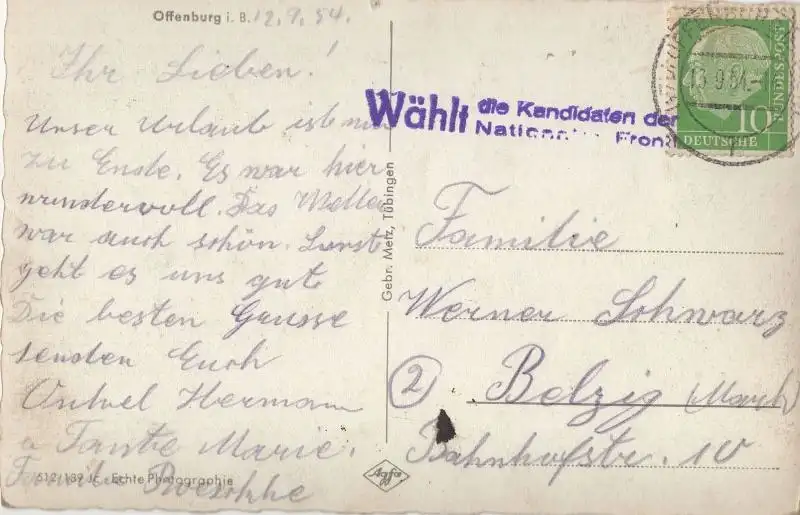 Offenburg i. B. 12.9.54.
Ihr Lieben!
Unser Urlaub ist nun
zu Ende. Es war hier
wundervoll. Das Wetter
war auch schön. Sonst
geht es uns gut
Die besten Grüsse
senden Euch
Onkel Hermann
u Tante Marie.
Familie
512/189 Jc Echte Photographie
Gebr. Metz, Tübingen
Agfa
Wählt die Kandidaten der
Nationalen Front
13.9.54.
10
DEUTSCHE
BUNDESPOST
Familie
Werner Schwarz
2 Belzig (Mark)
Bahnhofstr. 10